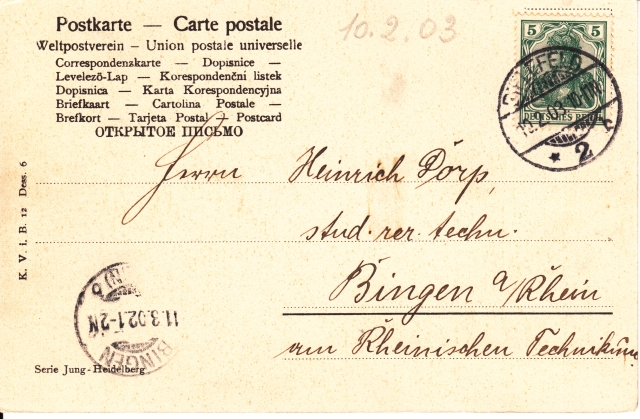 Postkarte — Carte postale
Weltpostverein - Union postale universelle
Correspondenzkarte — Dopisnice —
Levelező-Lap — Korespondenčni listek
Dopisnica — Karta Korespondencyjna
Briefkaart — Cartolina Postale —
Brefkort — Tarjeta Postal — Postcard
ОТКРЫТОЕ ПИСЬМО
10.2.03
5 5
DEUTSCHES REICH
* 2 c
Herrn Heinrich Dörp,
stud. rer. techn.
Bingen a/Rhein
am Rheinischen Technikum
11.3.02.1-2N
BINGEN
K. V. i. B. 12 Dess. 6
Serie Jung-Heidelberg